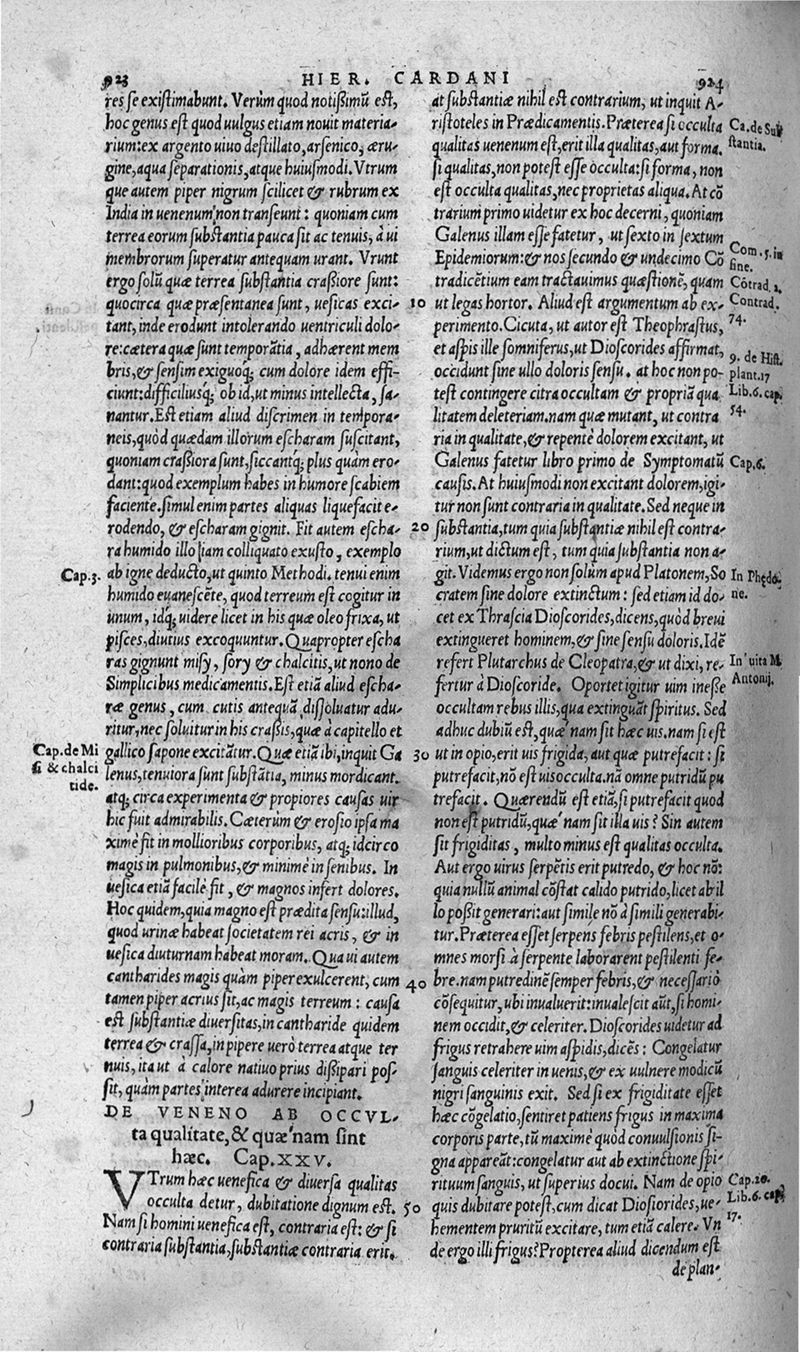 923
HIER. CARDANI
924
res se existimabunt. Verùm quod notißimũ est,
hoc genus est quod uulgus etiam nouit materia-
rium: ex argento uiuo destillato, arsenico, æru-
gine, aqua separationis, atque huiusmodi. Vtrum
que autem piper nigrum scilicet & rubrum ex
India in uenenum non transeunt: quoniam cum
terrea eorum substantia pauca sit ac tenuis, à ui
membrorum superatur antequam urant. Vrunt
ergo solũ quæ terrea substantia craßiore sunt:
quocirca quæ præsentanea sunt, uesicas exci-
tant, inde erodunt intolerando uentriculi dolo-
re: cætera quæ sunt temporãtia, adhærent mem
bris, & sensim exiguoq; cum dolore idem effi-
ciunt: difficiliusq; ob id, ut minus intellecta, sa-
nantur. Est etiam aliud discrimen in tempora-
neis, quòd quædam illorum escharam suscitant,
quoniam craßiora sunt, siccantq; plus quàm ero-
dant: quod exemplum habes in humore scabiem
faciente. simul enim partes aliquas liquefacit e-
rodendo, & escharam gignit. Fit autem escha-
ra humido illo iam colliquato exusto, exemplo
ab igne deducto, ut quinto Methodi. tenui enim
humido euanescẽte, quod terreum est cogitur in
unum, idq; uidere licet in his quæ oleo frixa, ut
pisces, diutius excoquuntur. Quapropter escha
ras gignunt misy, sory & chalcitis, ut nono de
Simplicibus medicamentis. Est etiã aliud escha-
ræ genus, cum cutis antequã dissoluatur adu-
ritur, nec soluitur in his craßis, quæ à capitello et
gallico sapone excitãtur. Quæ etiã ibi, inquit Ga
lenus, tenuiora sunt substãtia, minus mordicant.
atq; circa experimenta & propiores causas uir
hic fuit admirabilis. Cæterum & erosio ipsa ma
ximè fit in mollioribus corporibus, atq; idcirco
magis in pulmonibus, & minimè in senibus. In
uesica etiã facilè fit, & magnos infert dolores.
Hoc quidem, quia magno est prædita sensu: illud,
quod urinæ habeat societatem rei acris, & in
uesica diuturnam habeat moram. Qua ui autem
cantharides magis quàm piper exulcerent, cum
tamen piper acrius sit, ac magis terreum: causa
est substantiæ diuersitas, in cantharide quidem
terrea & crassa, in pipere uerò terrea atque ter
nuis, ita ut à calore natiuo prius dißipari pos-
sit, quàm partes interea adurere incipiant.
DE VENENO AB OCCVL-
ta qualitate, & quæ nam sint
hæc. Cap. XXV.
VTrum hæc uenefica & diuersa qualitas
occulta detur, dubitatione dignum est.
Nam si homini uenefica est, contraria est: & si
contraria substantia, substantiæ contraria erit.
Cap. 3.
Cap. de Mi
si & chalci
tide.
10
20
30
40
50
at substantiæ nihil est contrarium, ut inquit A-
ristoteles in Prædicamentis. Præterea si occulta
qualitas uenenum est, erit illa qualitas, aut forma.
si qualitas, non potest esse occulta: si forma, non
est occulta qualitas, nec proprietas aliqua. At cõ
trarium primo uidetur ex hoc decerni, quoniam
Galenus illam esse fatetur, ut sexto in sextum
Epidemiorum: & nos secundo & undecimo Cõ
tradicẽtium eam tractauimus quæstionẽ, quam
ut legas hortor. Aliud est argumentum ab ex-
perimento. Cicuta, ut autor est Theophrastus,
et aspis ille somniferus, ut Dioscorides affirmat,
occidunt sine ullo doloris sensu. at hoc non po-
test contingere citra occultam & propriã qua
litatem deleteriam. nam quæ mutant, ut contra
ria in qualitate, & repentè dolorem excitant, ut
Galenus fatetur libro primo de Symptomatũ
causis. At huiusmodi non excitant dolorem, igi-
tur non sunt contraria in qualitate. Sed neque in
substantia, tum quia substantiæ nihil est contra-
rium, ut dictum est, tum quia substantia non a-
git. Videmus ergo non solùm apud Platonem, So
cratem sine dolore extinctum: sed etiam id do-
cet ex Thrascia Dioscorides, dicens, quòd breui
extingueret hominem, & sine sensu doloris. Idẽ
refert Plutarchus de Cleopatra, & ut dixi, re-
fertur à Dioscoride. Oportet igitur uim inesse
occultam rebus illis, qua extinguãt spiritus. Sed
adhuc dubiũ est, quæ nam sit hæc uis. nam si est
ut in opio, erit uis frigida, aut quæ putrefacit: si
putrefacit, nõ est uis occulta. nã omne putridũ pu
trefacit. Quærendũ est etiã, si putrefacit quod
non est putridũ, quæ nam sit illa uis? Sin autem
sit frigiditas, multo minus est qualitas occulta.
Aut ergo uirus serpẽtis erit putredo, & hoc nõ:
quia nullũ animal cõstat calido putrido, licet ab il
lo poßit generari: aut simile nõ à simili generabi-
tur. Præterea esset serpens febris pestilens, et o-
mnes morsi à serpente laborarent pestilenti fe-
bre. nam putredinẽ semper febris, & necessariò
cõsequitur, ubi inualuerit: inualescit aũt, si homi-
nem occidit, & celeriter. Dioscorides uidetur ad
frigus retrahere uim aspidis, dicẽs: Congelatur
sanguis celeriter in uenis, & ex uulnere modicũ
nigri sanguinis exit. Sed si ex frigiditate esset
hæc cõgelatio, sentiret patiens frigus in maxima
corporis parte, tũ maximè quòd conuulsionis si-
gna appareãt: congelatur aut ab extinctione spi-
rituum sanguis, ut superius docui. Nam de opio
quis dubitare potest, cum dicat Diosiorides, ue-
hementem pruritũ excitare, tum etiã calere. Vn
de ergo illi frigus? Propterea aliud dicendum est
de plan-
Ca. de Sub
stantia.
Com. 5. in
fine.
Cõtrad. 2.
Contrad.
74.
9. de Hist.
plant. 17
Lib. 6. cap.
54.
Cap. 6.
In Phędo
ne.
In uita M.
Antonij.
Cap. 20.
Lib. 6. cap.
17.